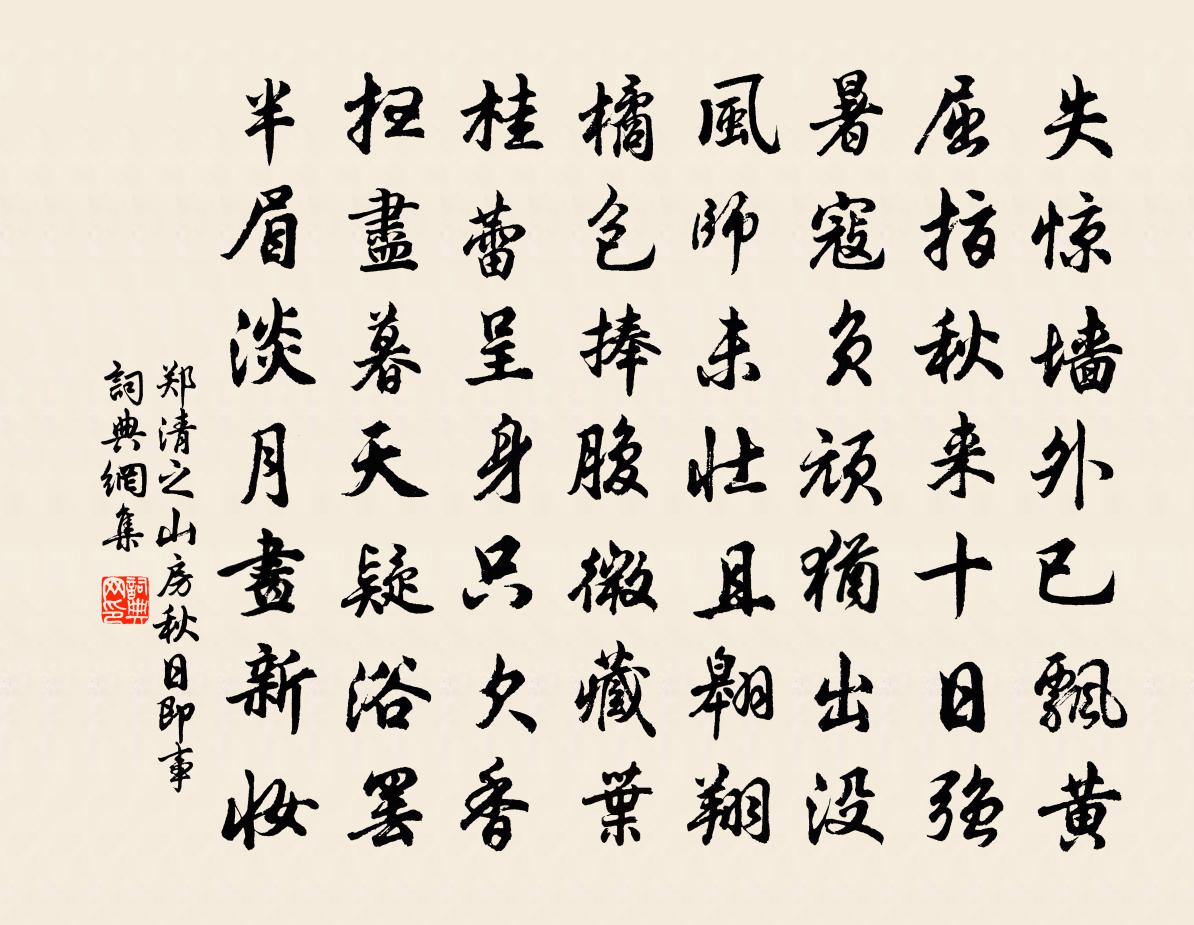 失惊墙外已飘黄
屈指秋来十日强
暑寇负顽犹出没
風師未壮且翱翔
橘包捧腹微藏葉
桂蕾呈身只欠香
扫盡暮天疑浴罢
半眉淡月畫新妆
郑清之山房秋日即事
詞典網集